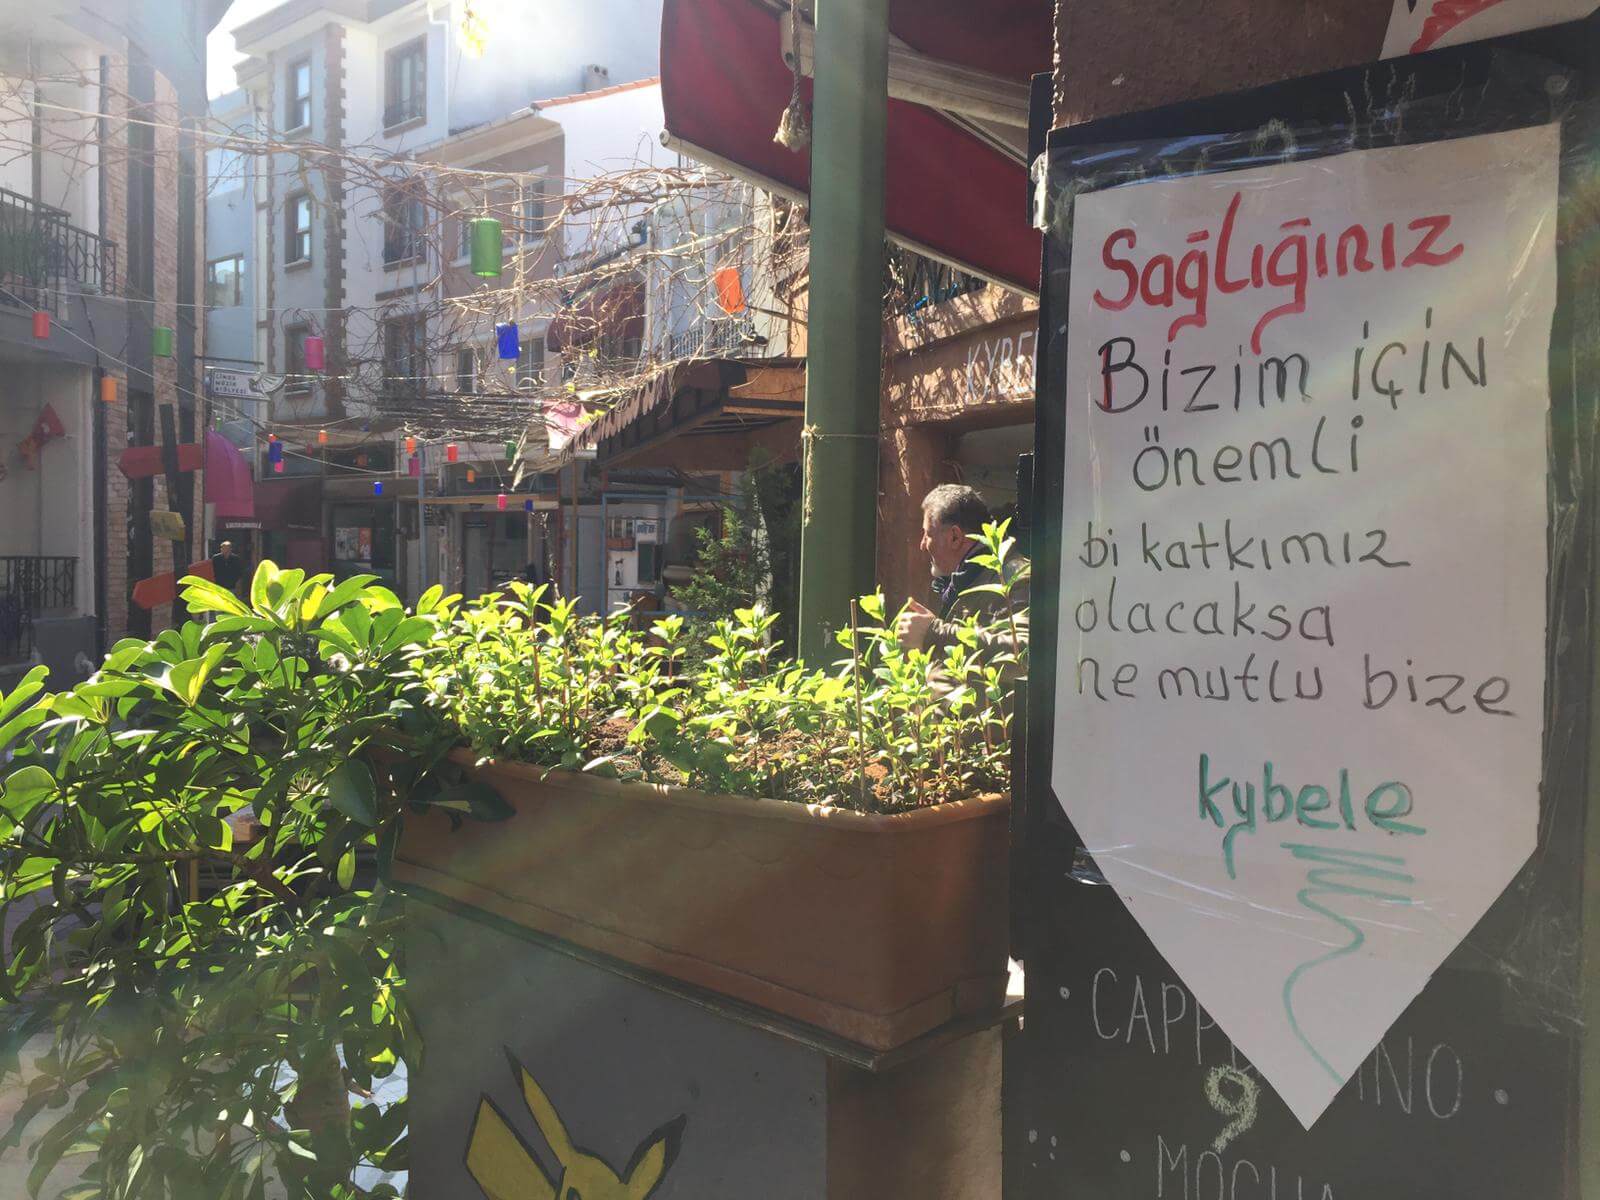 Sağlığınız
Bizim için
önemli
bi katkımız
olacaksa
ne mutlu bize
kybele
KYBE
MÜZİK
ATÖLYESİ
9
MOCHA